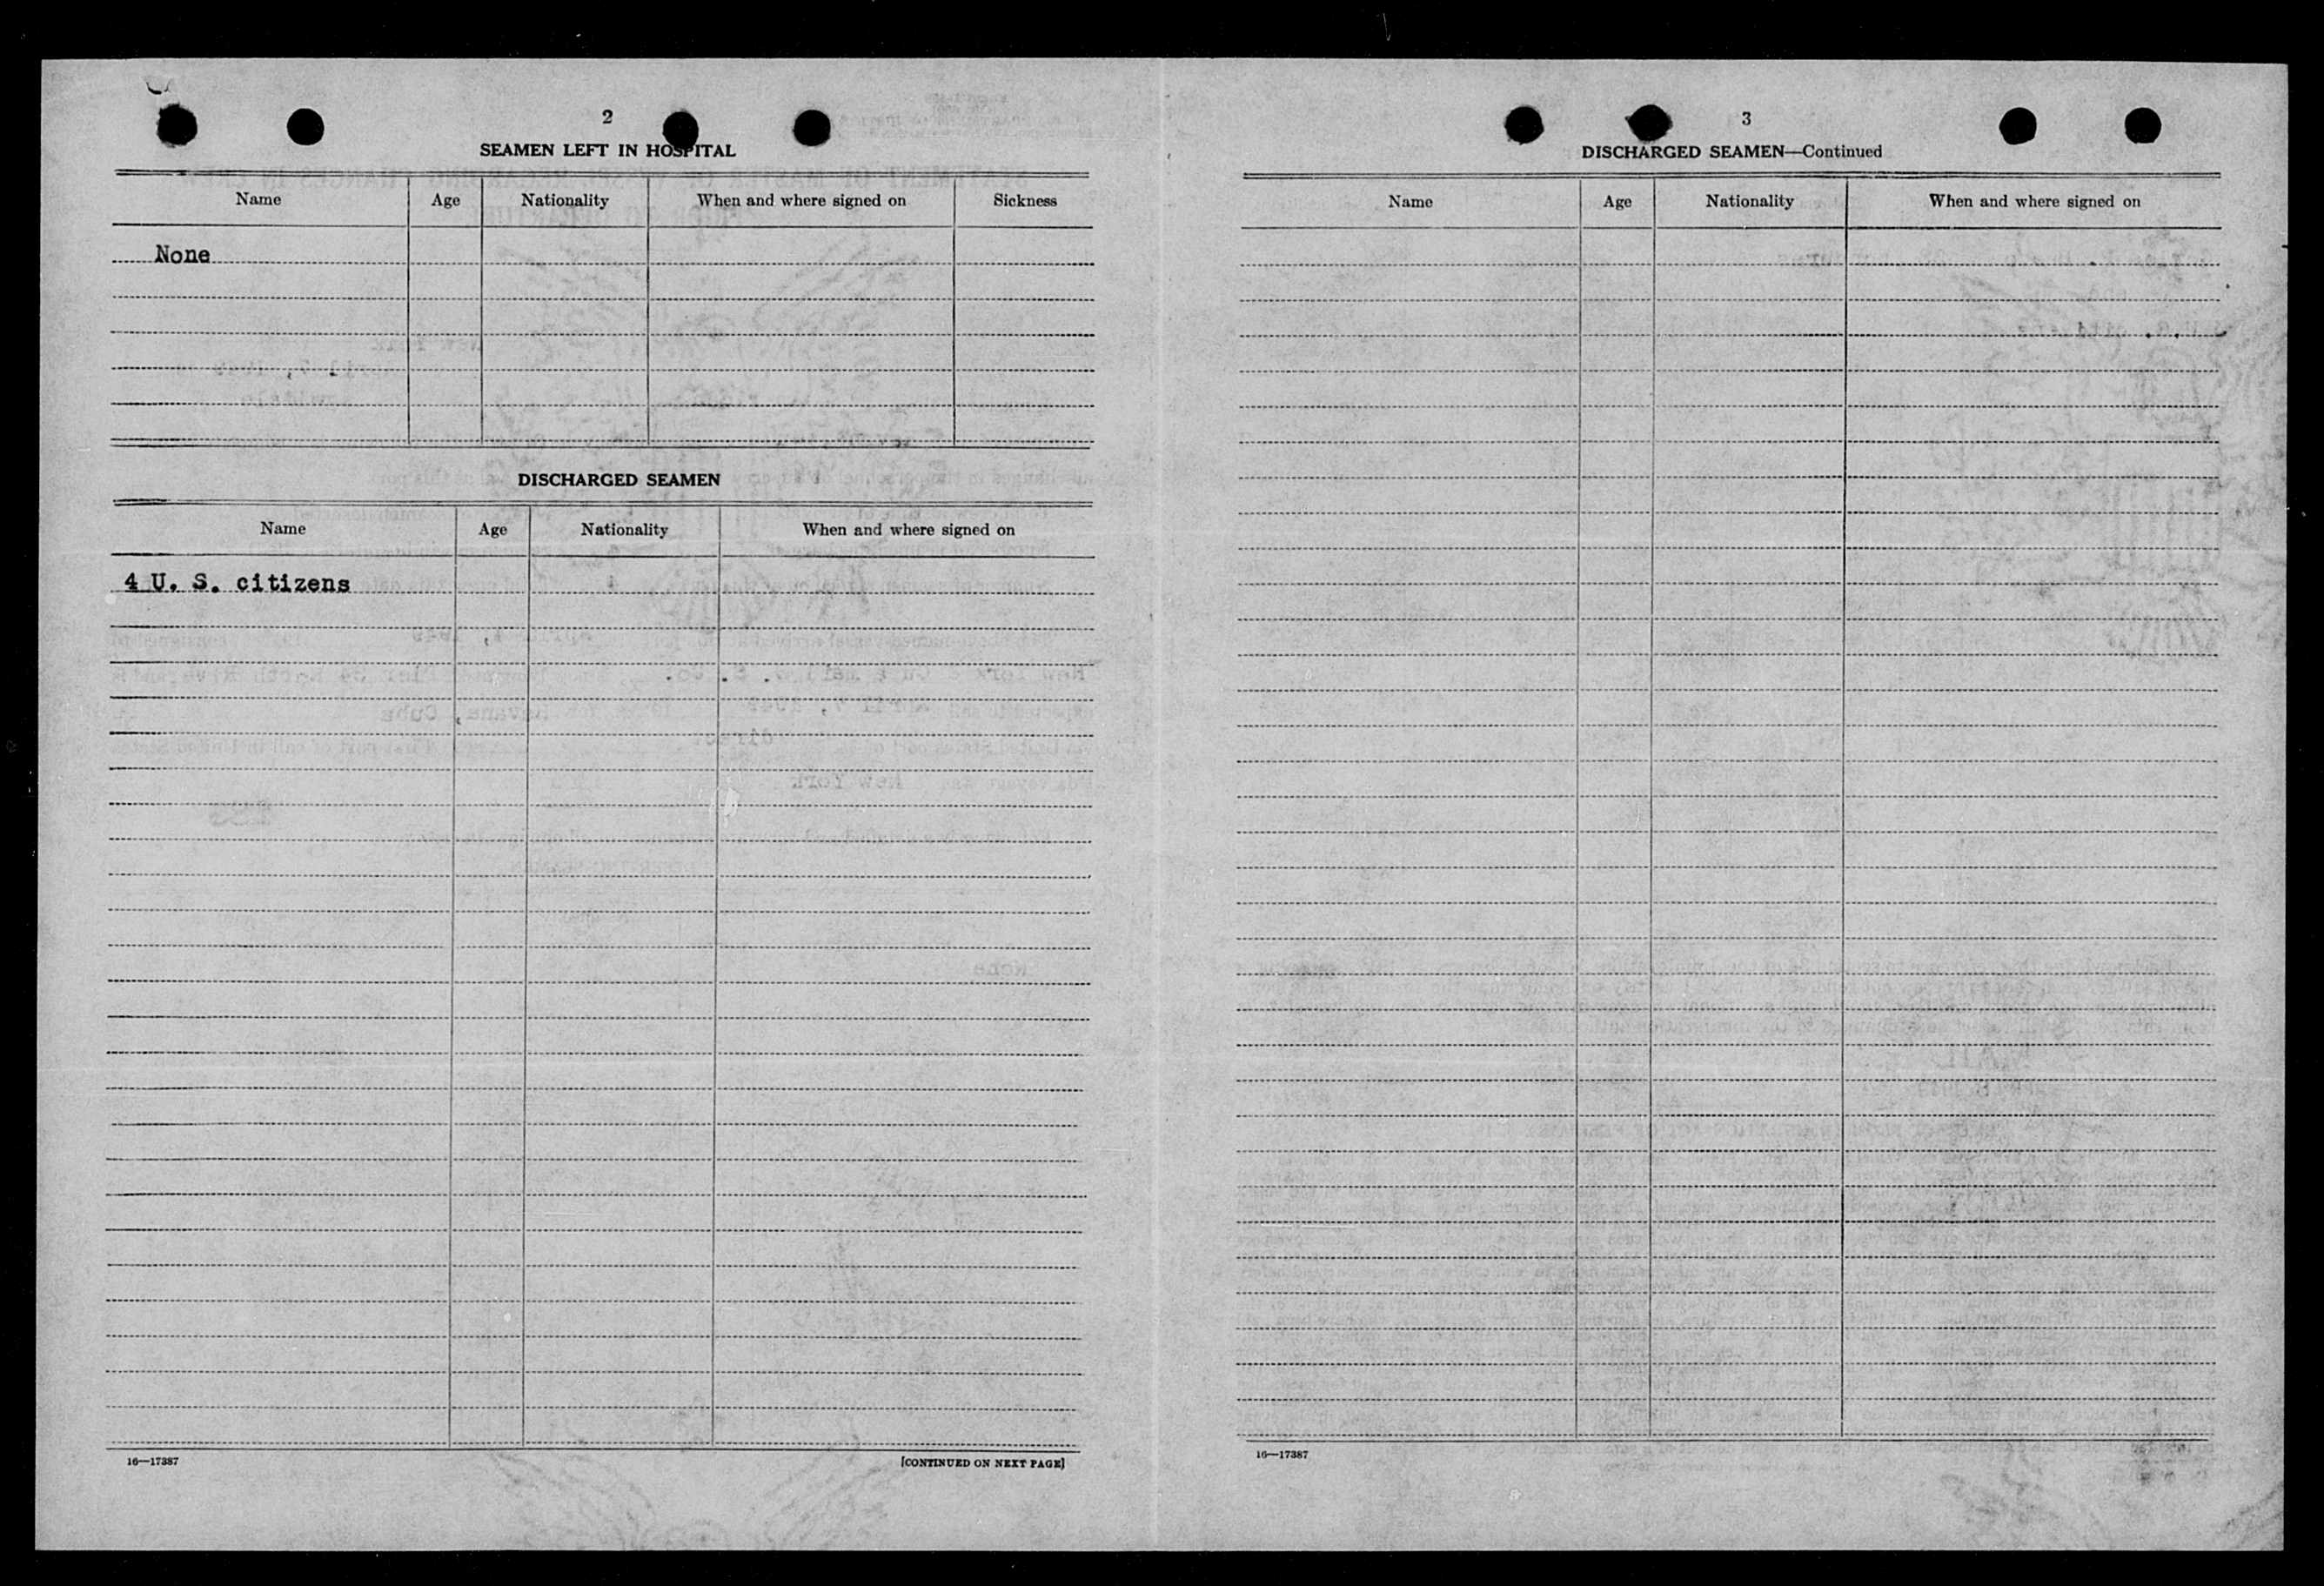 2
SEAMEN LEFT IN HOSPITAL
Name Age Nationality When and where signed on Sickness
None
DISCHARGED SEAMEN
Name Age Nationality When and where signed on
4 U. S. citizens
16—17387 [CONTINUED ON NEXT PAGE]
3
DISCHARGED SEAMEN—Continued
Name Age Nationality When and where signed on
16—17387